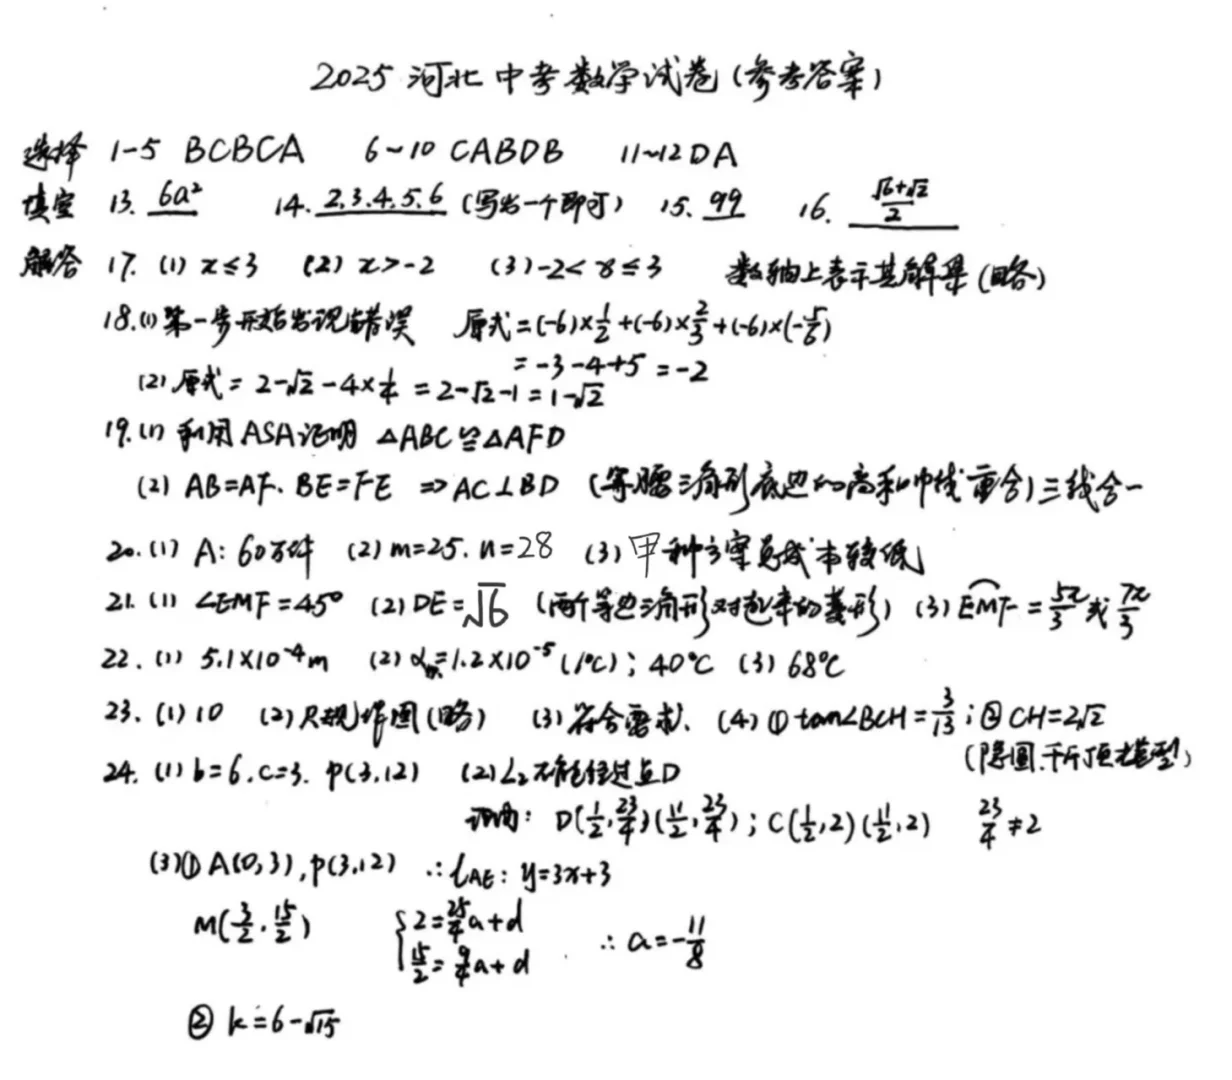 2025 河北中考数学试卷(参考答案)
选择 1-5 BCBCA 6~10 CABDB 11~12 DA
填空 13. 6a² 14. 2.3.4.5.6 (写出一个即可) 15. 99 16. (√6+√2)/2
解答 17. (1) x≤3 (2) x>-2 (3) -2<x≤3 数轴上表示其解集(略)
18.(1) 第一步开始出现错误 原式=(-6)×1/2+(-6)×2/3+(-6)×(-5/6)
=-3-4+5=-2
(2) 原式=2-√2-4×1/4=2-√2-1=1-√2
19.(1) 利用ASA证明 △ABC≌△AFD
(2) AB=AF. BE=FE ⇒ AC⊥BD (等腰三角形底边的高和中线重合)三线合一
20.(1) A: 60万件 (2) m=25. n=28 (3) 甲种方案总成本较低
21.(1) ∠EMF=45° (2) DE=√6 (两个等边三角形对起来的菱形) (3) EMF=5π/3或7π/3
22.(1) 5.1×10⁻⁴m (2) α=1.2×10⁻⁵(1/°C); 40°C (3) 68°C
23.(1) 10 (2) 尺规作图(略) (3) 符合要求. (4) ① tan∠BCH=3/13; ② CH=2√2
(隐圆.千斤顶模型)
24.(1) b=6.c=3. P(3,12) (2) L₂不能经过点D
理由: D(1/2,23/4)(11/2,23/4); C(1/2,2)(11/2,2) 23/4≠2
(3)① A(0,3),P(3,12) ∴ l_AE: y=3x+3
M(3/2,15/2) {2=25/4a+d
15/2=9/4a+d ∴ a=-11/8
② k=6-√15